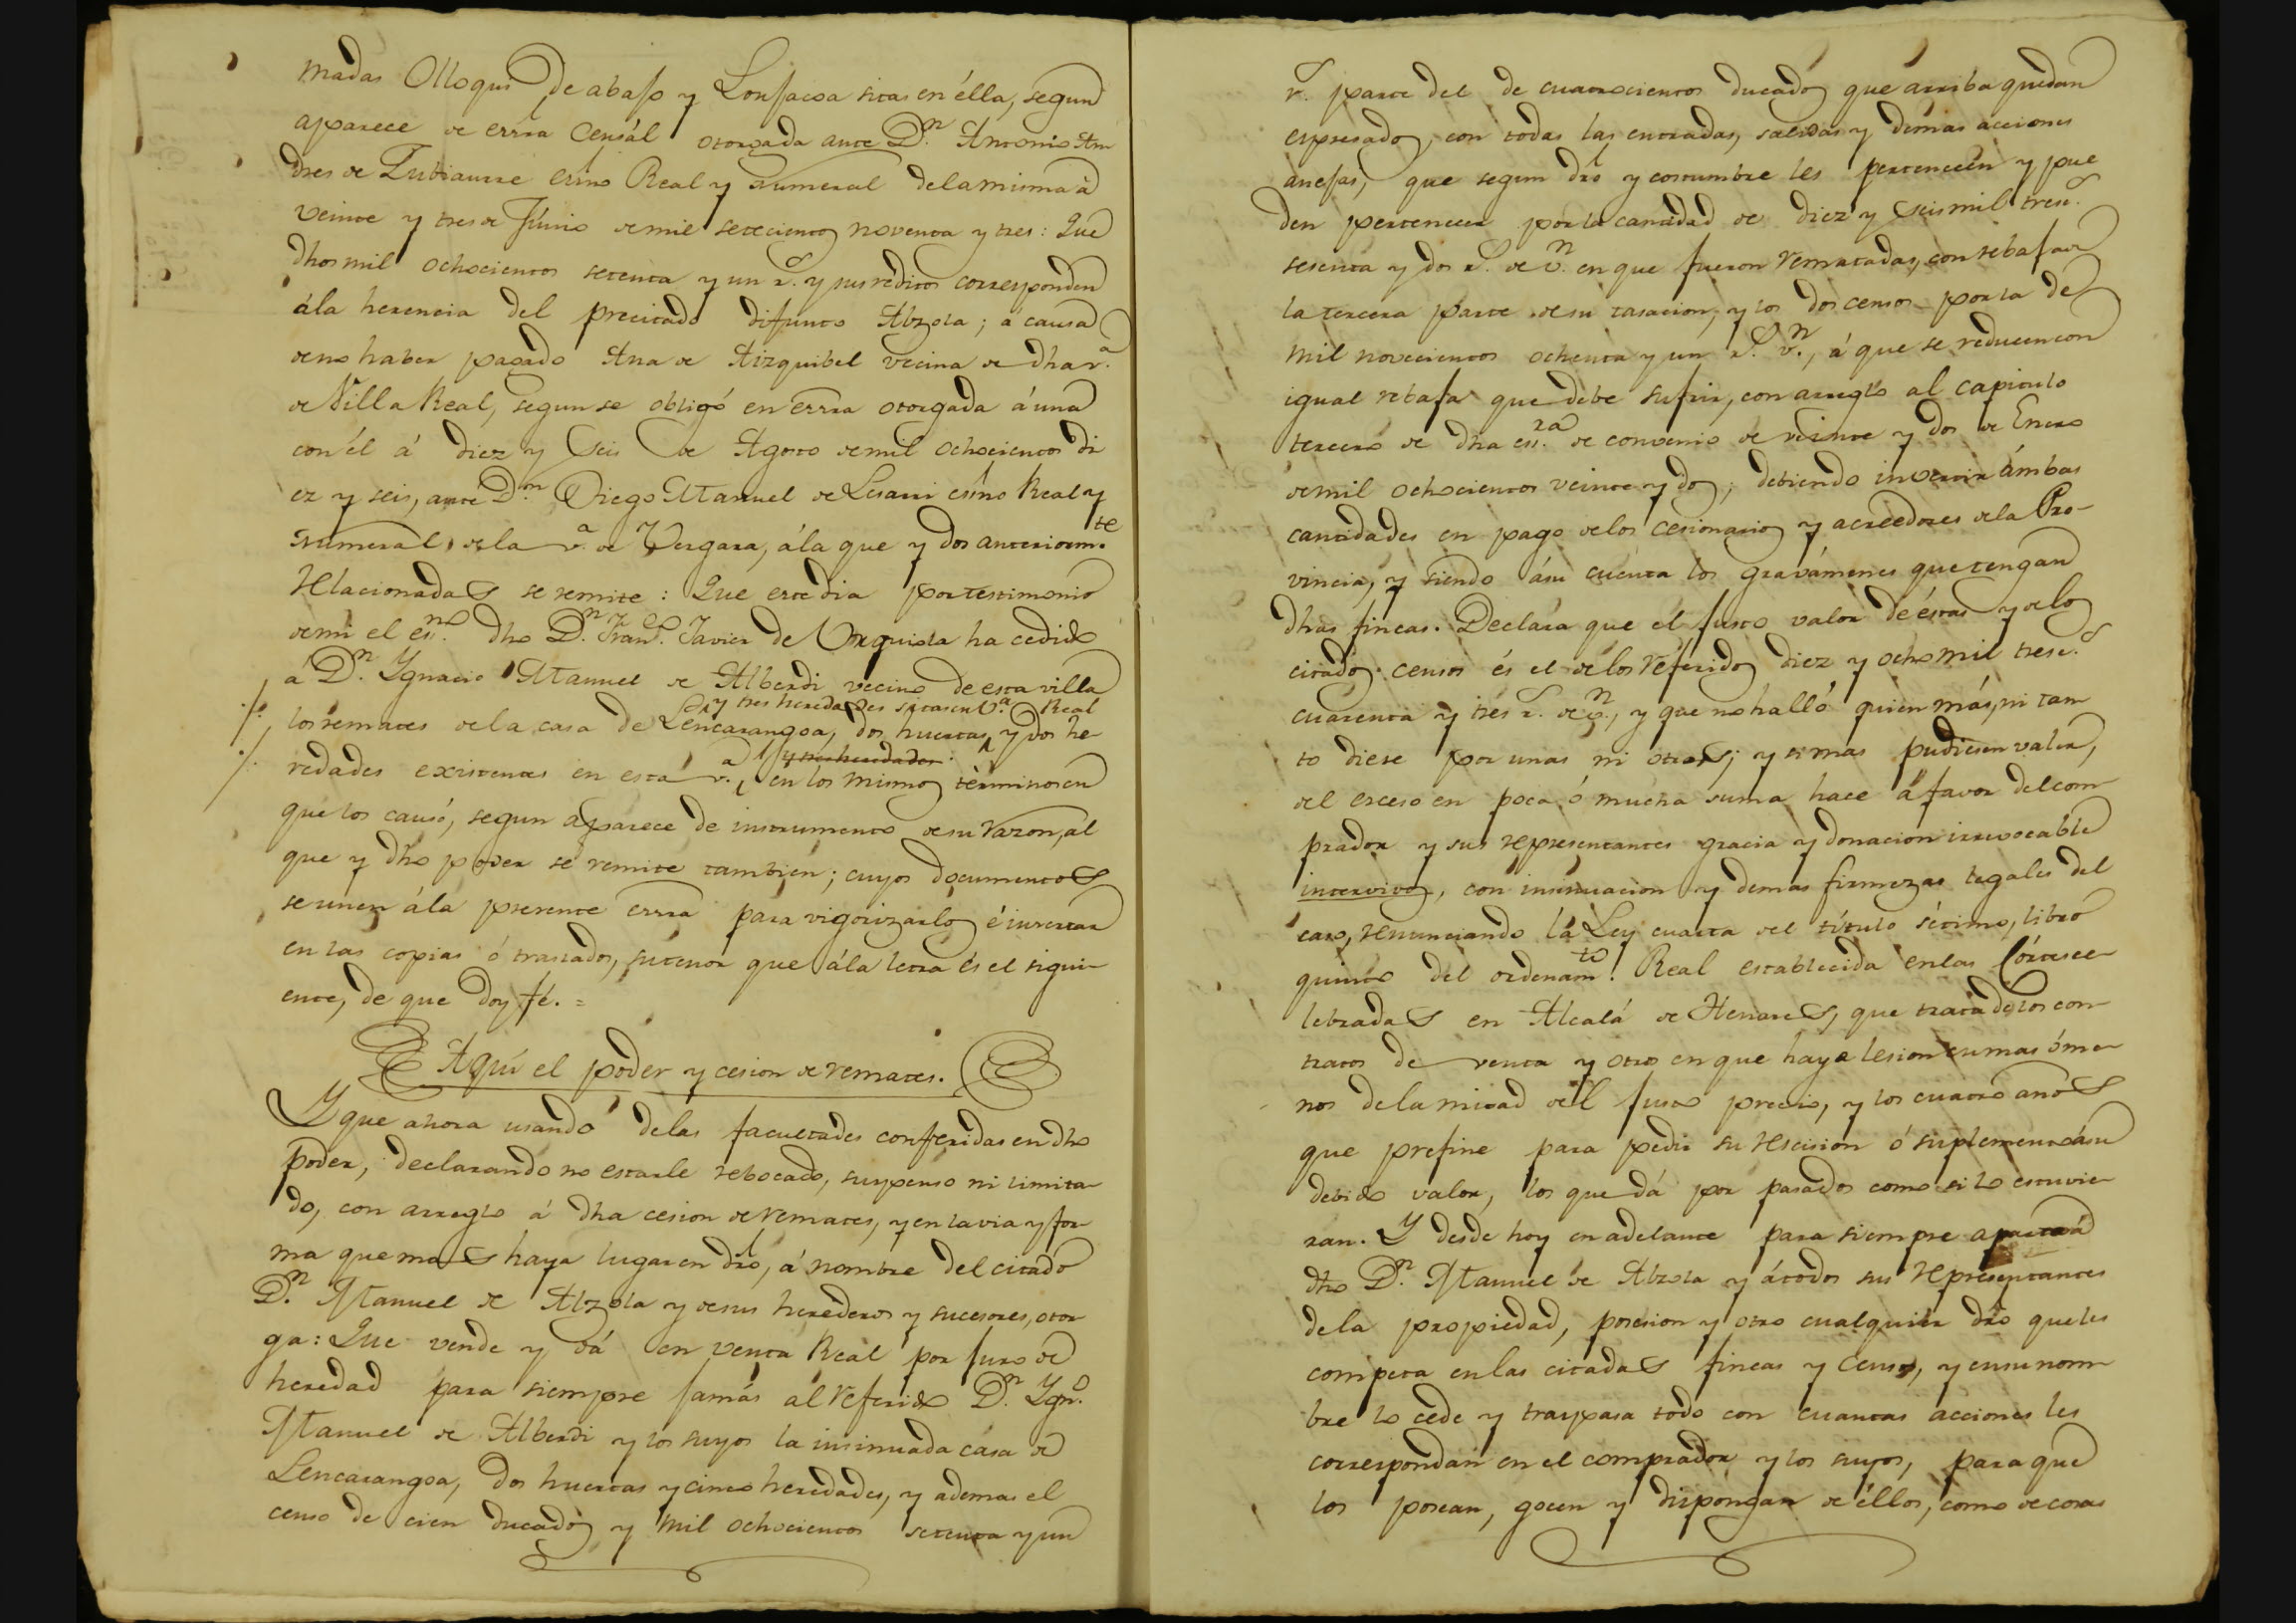 madas Olloqui de abajo y Lonjacoa sitas en élla, segun
aparece de essra Censál otorgada ante D.n Antonio An
dres de Tubiaurre esno Real y numeral de la misma á
veinte y tres de Júnio de mil setecientos noventa y tres: Que
dhos mil ochocientos setenta y un r.s y sus réditos corresponden
á la herencia del precitado difunto Alzola; á causa
de no haber pagado Ana de Aizquibel vecina de dha v.a
de Villa Real, segun se obligó en essra otorgada á una
con él á diez y seis de Agosto de mil ochocientos di
ez y seis, ante D.n Diego Manuel de Lesarri esno Real y
numeral de la v.a de Vergara, á la que y dos anteriorm.te
relacionadas se remite: Que este dia por testimonio
de mi el es.no dho D.n Fran.co Javier de Urquiola ha cedido
á D.n Ygnacio Manuel de Alberdi vecino de esta villa
y tres heredades sitas en V.a Real
los remates de la casa de Lencarangoa, dos huertas, y dos he
y tres heredades
redades existentes en esta v.a, en los mismos términos en
que los causó, segun aparece de instrumento de su razon, al
que y dho poder se remite tambien; cuyos documentos
se unen á la presente essra para vigorizarlos é insertar
en las copias ó traslados, su tenor que á la letra és el sigui-
ente, de que doy fé. =
Aquí el poder y cesion de remates.
Y que ahora usando de las facultades conferidas en dho
poder, declarando no estarle rebocado, suspenso ni limita-
do, con arreglo á dha cesion de remates, y en la via y for
ma que mas haya lugar en dro, á nombre del citado
D.n Manuel de Alzola y de sus herederos y sucesores, otor
ga: Que vende y dá en venta Real por juro de
heredad para siempre jamás al referido D.n Ygn.o
Manuel de Alberdi y los suyos la insinuada casa de
Lencarangoa, dos huertas y cinco heredades, y ademas el
censo de cien ducados y mil ochocientos setenta y un
r.s parte del de cuatrocientos ducados que arriba quedan
espresados, con todas las entradas, salidas y demas acciones
anejas, que segun dro y costumbre les pertenecen y pue
den pertenecer por la cantidad de diez y seis mil tresc.s
sesenta y dos r.s de v.n en que fueron rematadas, con rebaja de
la tercera parte de su tasacion, y los dos censos por la de
mil novecientos ochenta y un r.s v.n, á que se reducen con
igual rebaja que debe sufrir, con arreglo al capitulo
tercero de dha es.ra de convenio de veinte y dos de Enero
de mil ochocientos veinte y dos; debiendo invertir ámbas
cantidades en pago de los cesionarios y acreedores de la Pro-
vincia, y siendo á su cuenta los gravámenes que tengan
dhas fincas. Declara que el justo valor de éstas y de los
citados censos és el de los referidos diez y ocho mil tresc.s
cuarenta y trés r.s de v.n, y que no halló quien más, ni tan
to diese por unas ni otros; y si mas pudiesen valer,
del exceso en poca ó mucha suma hace á favor del com
prador y sus representantes gracia y donacion irrevocable
intervivos, con insinuacion y demas firmezas legales del
caso, renunciando la Ley cuarta del título sétimo, libro
quinto del ordenam.to Real establecida en las Córtes ce-
lebradas en Alcalá de Henares, que trata de los con-
tratos de venta y otro en que haya lesion en mas ó me-
nos de la mitad del justo precio, y los cuatro años
que prefine para pedir su rescision ó suplemento á su
debido valor, los que dá por pasados como si lo estuvie-
ran. Y desde hoy en adelante para siempre aparta á
dho D.n Manuel de Alzola y á todos sus representantes
de la propiedad, posesion y otro cualquier dro que les
competa en las citadas fincas y censos, y en su nom-
bre lo cede y traspasa todo con cuantas acciones les
correspondan en el comprador y los suyos, para que
los posean, gocen y dispongan de éllos, como de cosas